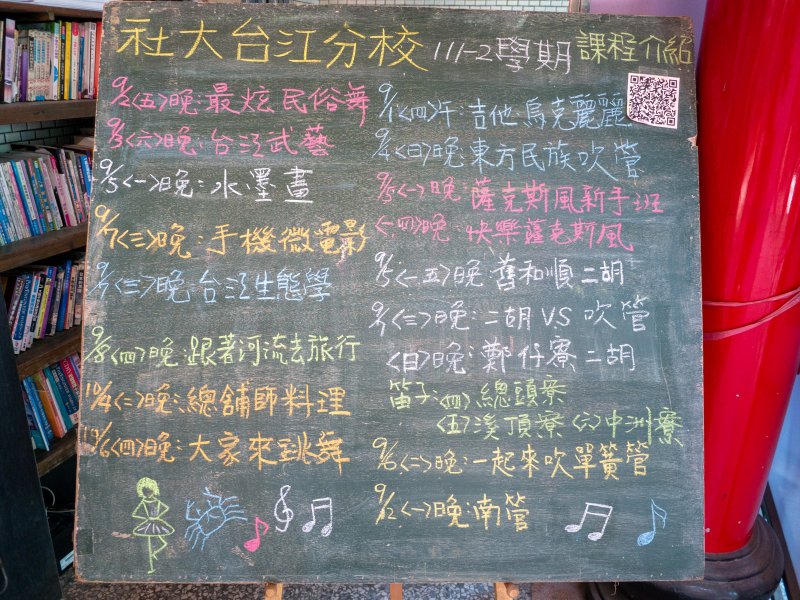 社大台江分校 111-2學期 課程介紹
9/2<五>晚:最炫民俗舞
9/3<六>晚:台江武藝
9/5<一>晚:水墨畫
9/7<三>晚:手機微電影
9/7<三>晚 台江生態學
9/8<四>晚:跟著河流去旅行
10/4<二>晚:總舖師料理
10/6<四>晚:大家來跳舞
9/1<四>午:吉他烏克麗麗
9/4<日>晚:東方民族吹管
9/5<一>晚:薩克斯風新手班
<四>晚:快樂薩克斯風
9/5<一五>晚:舊和順二胡
<三>晚:二胡 VS 吹管
<日>晚:鄭仔寮二胡
笛子:<四>總頭寮
<五>溪頂寮 <六>中洲寮
9/6<二>晚:一起來吹單簧管
9/12<一>晚:南管